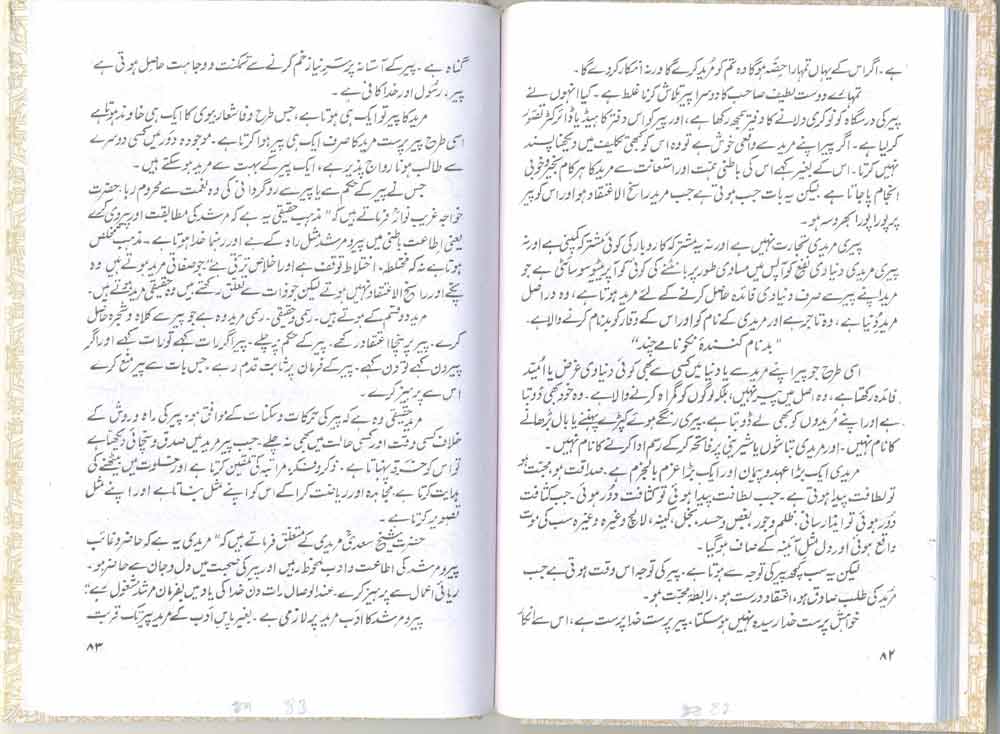 ہے۔ اگر اس کے یہاں تمہارا حصّہ ہوگا وہ تم کو مُرید کرے گا ورنہ انکار کر دے گا۔
تمہارے دوست لطیف صاحب کا دوسرا پیر تلاش کرنا غلط ہے۔ کیا انہوں نے
پیر کی درسگاہ کو نوکری دلانے کا دفتر سمجھ رکھا ہے، اور پیر کو اس دفتر کا ہیڈ یا ڈائرکٹر تصوّر
کر لیا ہے۔ اگر پیر اپنے مرید سے واقعی خوش ہے تو وہ اس کو کبھی تکلیف میں دیکھنا پسند
نہیں کرتا۔ اس کے بغیر کہے اس کی باطنی محبت اور استعانت سے مرید کا ہر کام بخیر و خوبی
انجام پا جاتا ہے لیکن یہ بات جب ہوتی ہے جب مرید راسخ الاعتقاد ہو اور اس کو پیر
پر پورا پورا بھروسہ ہو۔
پیری مریدی تجارت نہیں ہے اور نہ یہ مشترکہ کاروبار کی کوئی مشترکہ کمپنی ہے اور نہ
پیری مریدی دنیاوی نفع کو آپس میں مساوی طور پر بانٹنے کی کوئی کوآپریٹیو سوسائٹی ہے جو
مرید اپنے پیر سے صرف دنیاوی فائدہ حاصل کرنے کے لئے مرید ہوتا ہے، وہ دراصل
مریدِ دُنیا ہے، وہ تاجر ہے اور مریدی کے نام کو اور اس کے وقار کو بدنام کرنے والا ہے۔
"بدنام کنندۂ نکو نامے چند"
اسی طرح جو پیر اپنے مرید سے یا دنیا میں کسی سے بھی کوئی دنیاوی غرض یا اُمیّد
فائدہ رکھتا ہے، وہ اصل میں پیر نہیں، بلکہ لوگوں کو گمراہ کرنے والا ہے۔ وہ خود بھی ڈوبتا
ہے اور اپنے مُریدوں کو بھی لے ڈوبتا ہے۔ پیری رنگے ہوئے کپڑے پہننے یا بال بڑھانے
کا نام نہیں۔ اور مریدی بتاشوں یا شیرینی پر فاتحہ کر کے رسم ادا کرنے کا نام نہیں۔
مریدی ایک بڑا عہد و پیمان اور ایک بڑا عزم بالجزم ہے۔ صداقت ہو، محبت ہو
تو لطافت پیدا ہوتی ہے۔ جب لطافت پیدا ہوئی تو کثافت دُور ہوئی۔ جب کثافت
دُور ہوئی تو ایذا رسانی، ظلم و جور، بغض و حسد، بخل، کینہ، لالچ وغیرہ وغیرہ سب کی موت
واقع ہوئی اور دل مثلِ آئینہ کے صاف ہو گیا۔
لیکن یہ سب کچھ پیر کی توجہ سے ہوتا ہے۔ پیر کی توجہ اس وقت ہوتی ہے جب
مُرید کی طلب صادق ہو، اعتقاد درست ہو، رابطۂ محبّت ہو۔
خواہش پرست خدا رسیدہ نہیں ہو سکتا، پیر پرست خدا پرست ہے، اس سے انکار
۸۲
گناہ ہے۔ پیر کے آستانہ پر سرِ نیاز خم کرنے سے تمکنت و وجاہت حاصل ہوتی ہے
پیر، رسُول اور خدا کافی ہے۔
مرید کا پیر تو ایک ہی ہوتا ہے، جس طرح وفا شعار بیوی کا ایک ہی خاوند ہوتا ہے
اسی طرح پیر پرست مرید کا صرف ایک ہی پیر ہوا کرتا ہے۔ موجودہ دور میں کسی دوسرے
سے طالب ہونا رواج پذیر ہے، ایک پیر کے بہت سے مرید ہو سکتے ہیں۔
جس نے پیر کے حکم سے یا پیر سے روگردانی کی وہ نعمت سے محروم رہا، حضرت
خواجہ غریب نوازؒ فرماتے ہیں کہ "مذہب حقیقی یہ ہے کہ مرشد کی مطابقت اور پیروی کرے
یعنی اطاعت باطنی میں پیر و مرشد مثل راہ کے ہے اور رہنما خدا ہوتا ہے۔ مذہب مخلص
ہوتا ہے نہ کہ مختلط۔ اختلاط توقف ہے اور اخلاص ترقی ہے" جو صفاتی مرید ہوتے ہیں وہ
پکّے اور راسخ الاعتقاد نہیں ہوتے لیکن جو ذات سے تعلق رکھتے ہیں وہ حقیقی مرید بنتے ہیں۔
مرید دو قسم کے ہوتے ہیں۔ رسمی و حقیقی۔ رسمی مرید وہ ہے جو پیر سے کلاہ و شجرہ حاصل
کرے۔ پیر پر سچا اعتقاد رکھے۔ پیر کے حکم پر چلے۔ پیر اگر رات کہے تو رات کہے اور اگر
پیر دن کہے تو دن کہے۔ پیر کے فرمان پر ثابت قدم رہے۔ جس بات سے پیر منع کرے
اس سے پرہیز کرے۔
مرید حقیقی وہ ہے کہ پیر کی حرکات و سکنات کے موافق ہو۔ پیر کی راہ و روش کے
خلاف کسی وقت اور کسی حالت میں بھی نہ چلے۔ جب پیر مرید میں صدق و سچائی دیکھتا ہے
تو اس کو خرقہ پہناتا ہے۔ ذکر و فکر، مراقبہ کی تلقین کرتا ہے اور خلوت میں بیٹھنے کی
ہدایت کرتا ہے۔ مجاہدہ اور ریاضت کرا کے اس کو اپنے مثل بناتا ہے اور اپنے مثل
تصویر کرتا ہے۔
حضرت شیخ سعدیؒ مریدی کے متعلق فرماتے ہیں کہ "مریدی یہ ہے کہ حاضر و غائب
پیر و مرشد کی اطاعت و ادب ملحوظ رہیں اور پیر کی صحبت میں دل و جان سے حاضر ہو۔
ریائی اعمال سے پرہیز کرے۔ عند الوصال رات دن خدا کی یاد میں بفرمان مرشد مشغول رہے"
پیر و مرشد کا ادب مرید پر لازمی ہے۔ بغیر پاس ادب کے مرید پیر تک قربت
۸۳
82
83